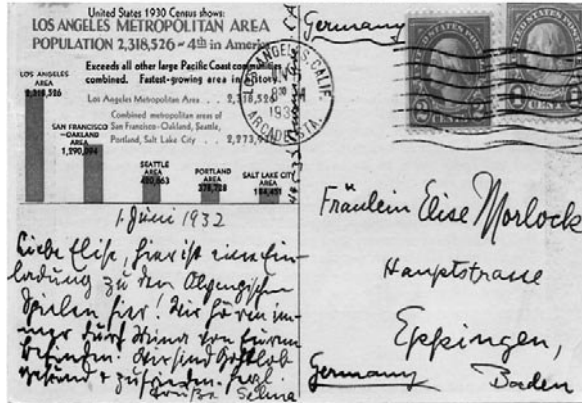 United States 1930 Census shows:
LOS ANGELES METROPOLITAN AREA
POPULATION 2,318,526 ~ 4th in America
Exceeds all other large Pacific Coast communities
combined. Fastest-growing area in history.
Los Angeles Metropolitan Area . . . 2,318,526
Combined metropolitan areas of
San Francisco-Oakland, Seattle,
Portland, Salt Lake City . . 2,273,9
LOS ANGELES
AREA
2,318,526
SAN FRANCISCO
-OAKLAND
AREA
1,290,094
SEATTLE
AREA
420,663
PORTLAND
AREA
378,728
SALT LAKE CITY
AREA
184,451
1. Juni 1932
Liebe Elise, hier ist eine Ein-
ladung zu den Olympischen
Spielen hier! Wir hören im-
mer durch Mina von Eurem
Befinden. Wir sind Gottlob
gesund & zufrieden. Herzl.
Grüße Selma
Germany
LOS ANGELES, CALIF.
8 30
193
ARCADE STA.
UNITED STATES POSTAGE
2 CENTS 2
1 CENT
Fräulein Elise Morlock
Hauptstrasse
Eppingen,
Baden
Germany